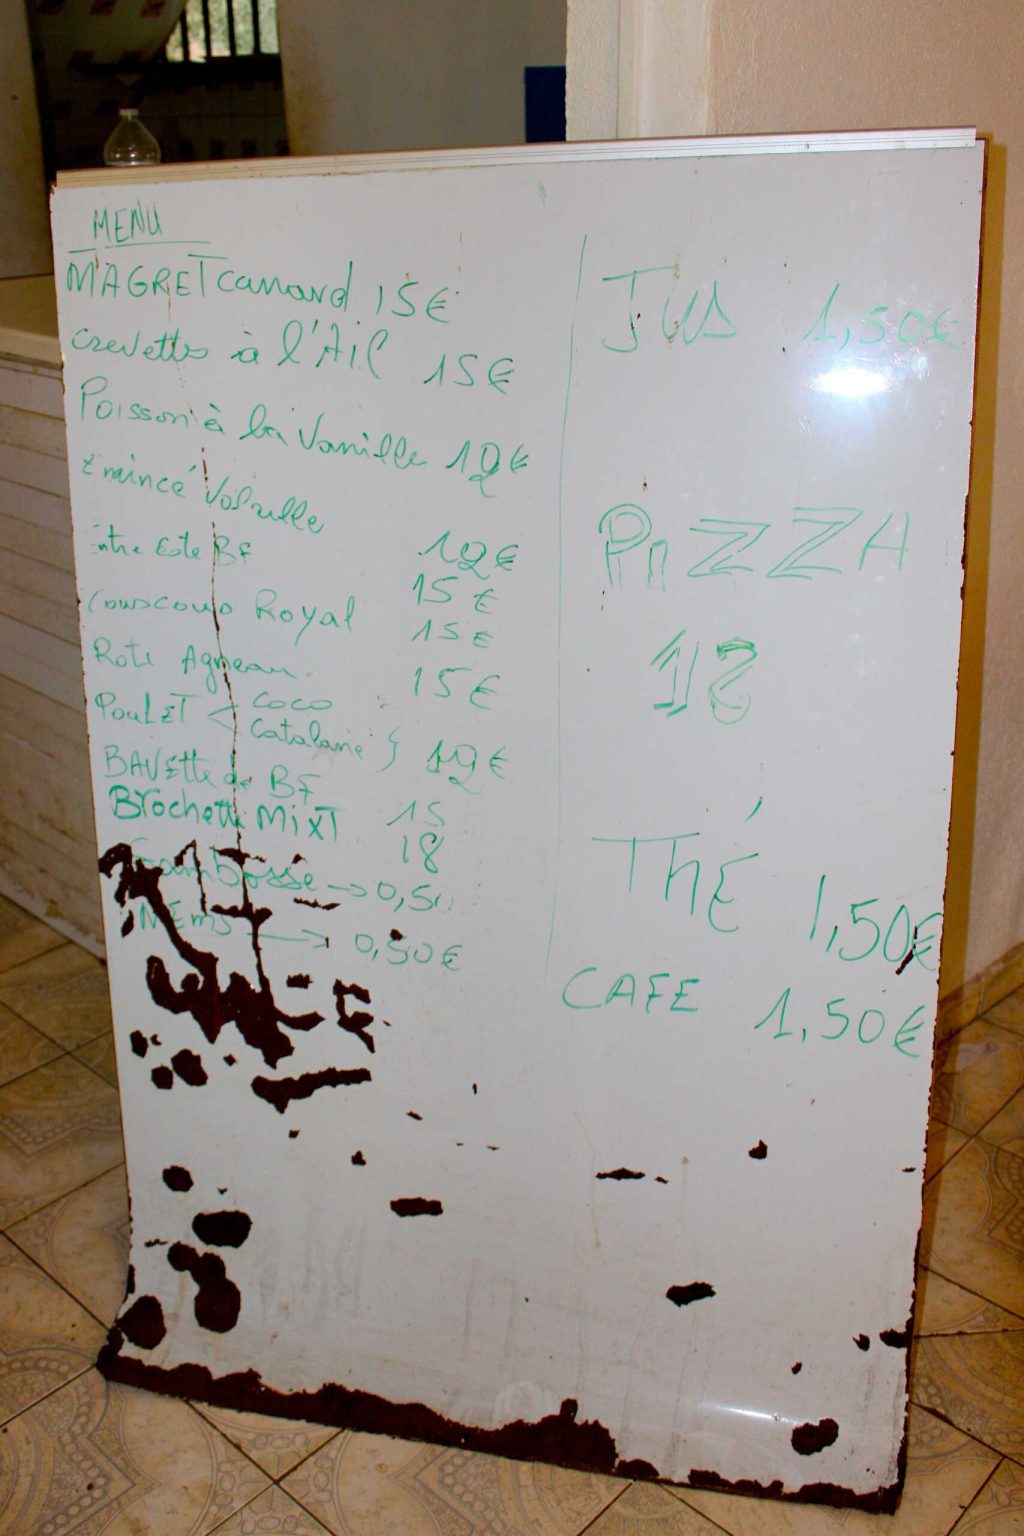 MENU
MAGRET canard 15€
crevettes à l'Ail 15€
Poisson à la Vanille 12€
Emincé Volaille 12€
Entre Cote BF 15€
Couscous Royal 15€
Roti Agneau 15€
POULET < Coco
Catalane } 12€
BAVette de BF 15
Brochette MixT 18
→ 0,50
NEMS → 0,50€
JUS 1,50€
PiZZA
12
THÉ 1,50€
CAFE 1,50€